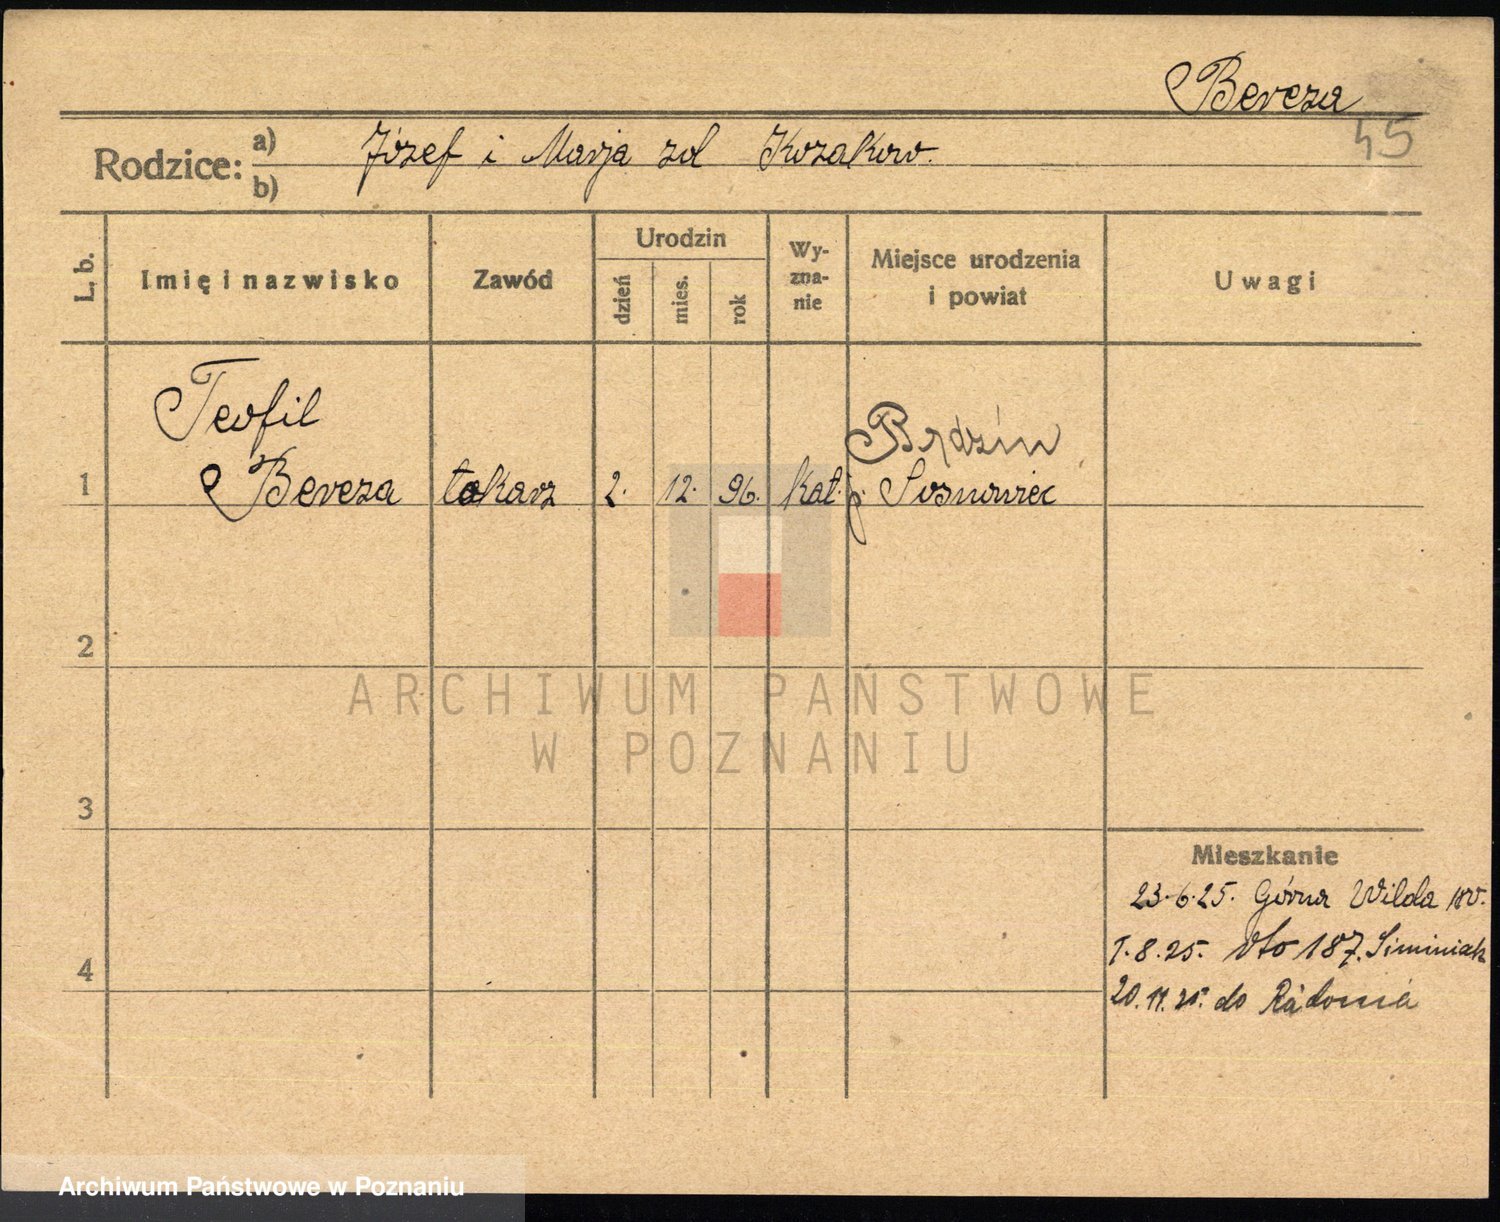 Bereza
45
Rodzice: a) Józef i Marja zd Kozakow.
b)
L. b.
Imię i nazwisko
Zawód
Urodzin
dzień
mies.
rok
Wy-
zna-
nie
Miejsce urodzenia
i powiat
Uwagi
Teofil
Będzin
1 Bereza tokarz 2. 12. 96. kat. p. Sosnowiec
2
ARCHIWUM PAŃSTWOWE
W POZNANIU
3
Mieszkanie
23.6.25. Górna Wilda
1.8.25. 187. Siminiak
4
20.11.25. do Radomia
Archiwum Państwowe w Poznaniu